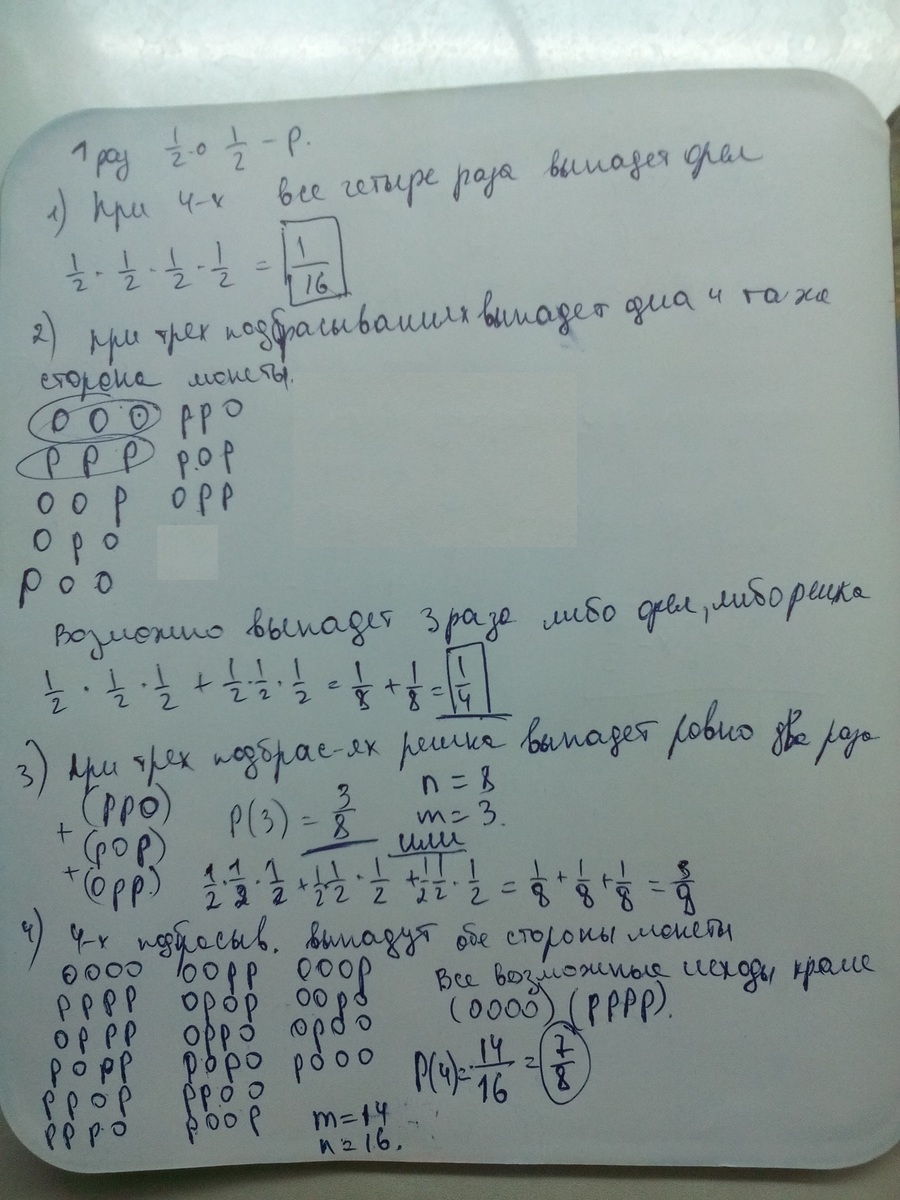 1 раз 1/2 - о 1/2 - р.
1) При 4-х все четыре раза выпадет орел
1/2 · 1/2 · 1/2 · 1/2 = 1/16
2) при трех подбрасываниях выпадет одна и та же
сторона монеты.
О О О РРО
Р Р Р РОР
О О Р ОРР
О Р О
Р О О
Возможно выпадет 3 раза либо орел, либо решка
1/2 · 1/2 · 1/2 + 1/2 · 1/2 · 1/2 = 1/8 + 1/8 = 1/4
3) при трех подбрас-ях решка выпадет ровно два раза
(РРО) n = 8
+ (РОР) P(3) = 3/8 m = 3.
+ (ОРР) или
1/2 · 1/2 · 1/2 + 1/2 · 1/2 · 1/2 + 1/2 · 1/2 · 1/2 = 1/8 + 1/8 + 1/8 = 3/8
4) 4-х подбрасыв. выпадут обе стороны монеты
ОООО ООРР ОООР Все возможные исходы кроме
РРРР ОРОР ООРО (ОООО) (РРРР).
ОРРР ОРРО ОРОО
РОРР РОРО РООО P(4) = 14/16 = 7/8
РРОР РРОО
РРРО РООР m = 14
n = 16.